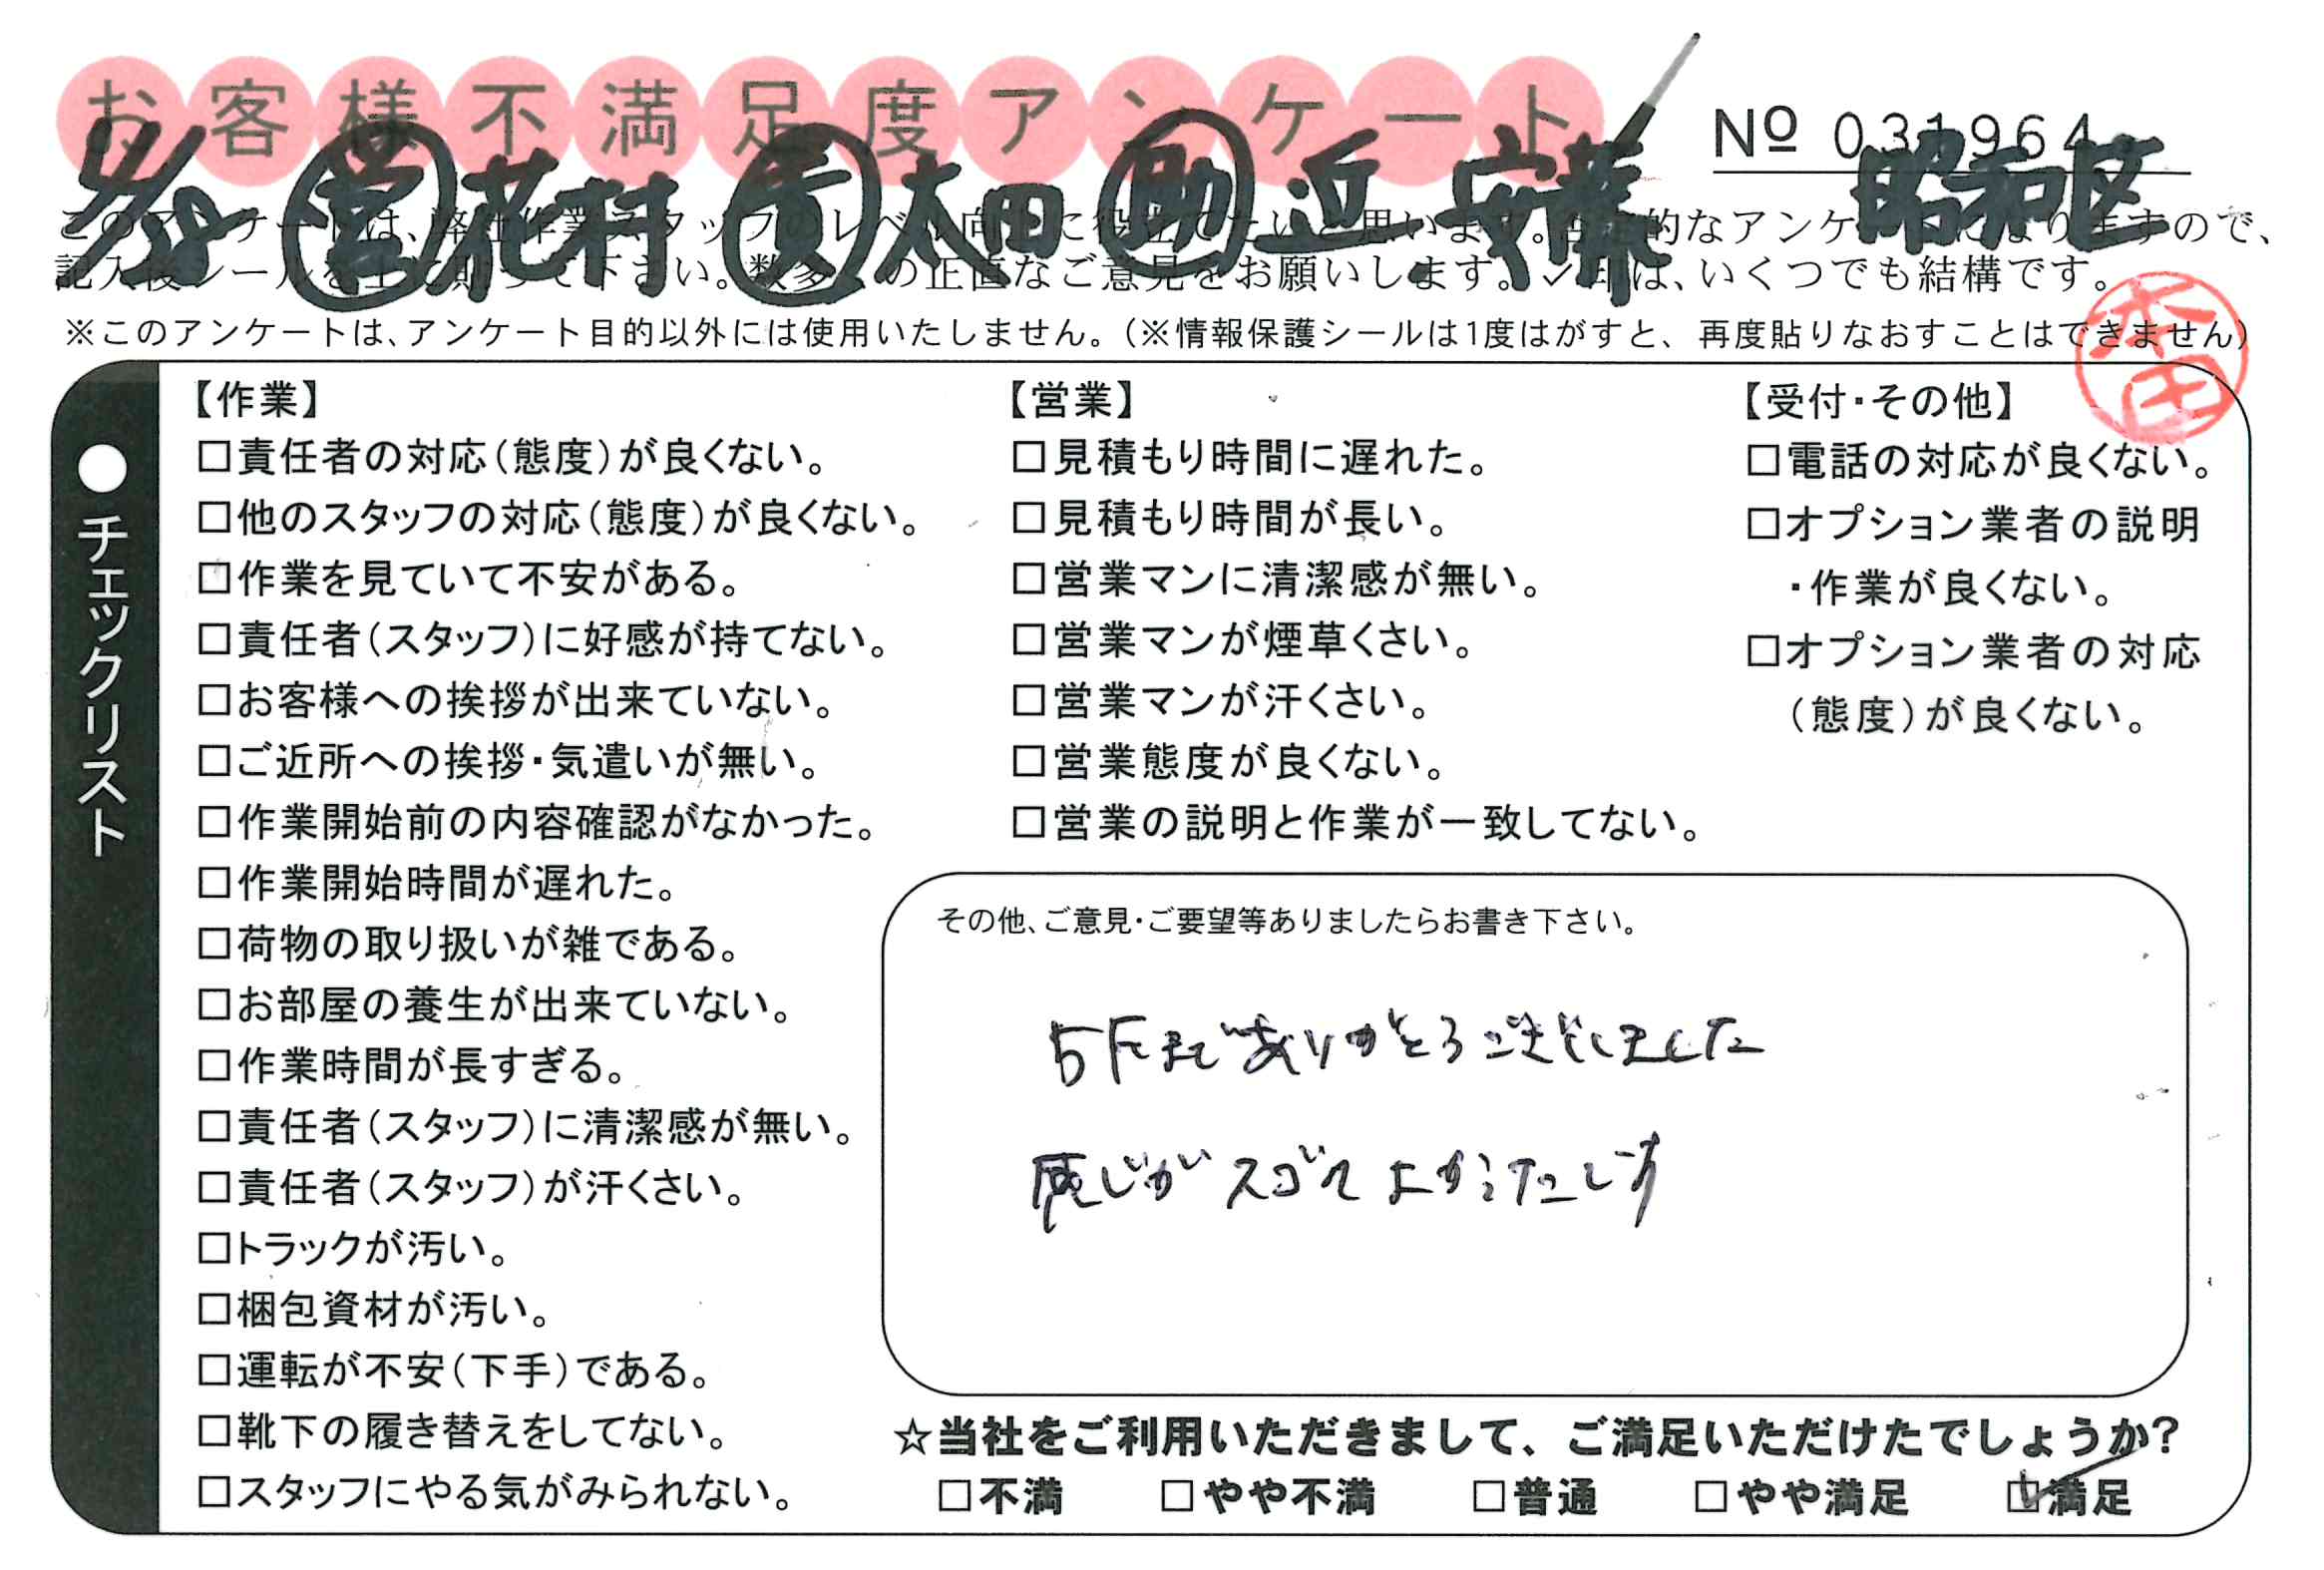 お客様不満足度アンケート
№ 031964
11/28 ㊂営 花村 責 太田 助 近 安藤 昭和区
このアンケートは、弊社作業スタッフのレベル向上に役立てたいと思います。 的なアンケ になりますので、
記入後シールを上に貼って下さい。数多くの正直なご意見をお願いします。レ印は、いくつでも結構です。
※このアンケートは、アンケート目的以外には使用いたしません。(※情報保護シールは1度はがすと、再度貼りなおすことはできません)
本田
●チェックリスト
【作業】
□責任者の対応(態度)が良くない。
□他のスタッフの対応(態度)が良くない。
□作業を見ていて不安がある。
□責任者(スタッフ)に好感が持てない。
□お客様への挨拶が出来ていない。
□ご近所への挨拶・気遣いが無い。
□作業開始前の内容確認がなかった。
□作業開始時間が遅れた。
□荷物の取り扱いが雑である。
□お部屋の養生が出来ていない。
□作業時間が長すぎる。
□責任者(スタッフ)に清潔感が無い。
□責任者(スタッフ)が汗くさい。
□トラックが汚い。
□梱包資材が汚い。
□運転が不安(下手)である。
□靴下の履き替えをしてない。
□スタッフにやる気がみられない。
【営業】
□見積もり時間に遅れた。
□見積もり時間が長い。
□営業マンに清潔感が無い。
□営業マンが煙草くさい。
□営業マンが汗くさい。
□営業態度が良くない。
□営業の説明と作業が一致してない。
【受付・その他】
□電話の対応が良くない。
□オプション業者の説明
・作業が良くない。
□オプション業者の対応
(態度)が良くない。
その他、ご意見・ご要望等ありましたらお書き下さい。
5Fまでありがとうございました
感じがスゴくよかったです
☆当社をご利用いただきまして、ご満足いただけたでしょうか?
□不満 □やや不満 □普通 □やや満足 ☑満足